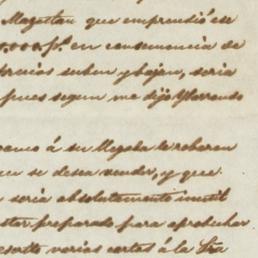 Magestad que emprendió ese
0.000 ps. en consonancia de
precios suben y bajan, seria
pues segun me dijo
á su Llegada le roberon
se desea vender, y que
seria absolutamente inutil
estar preparado para aprobechar
varias cartas á la Sra